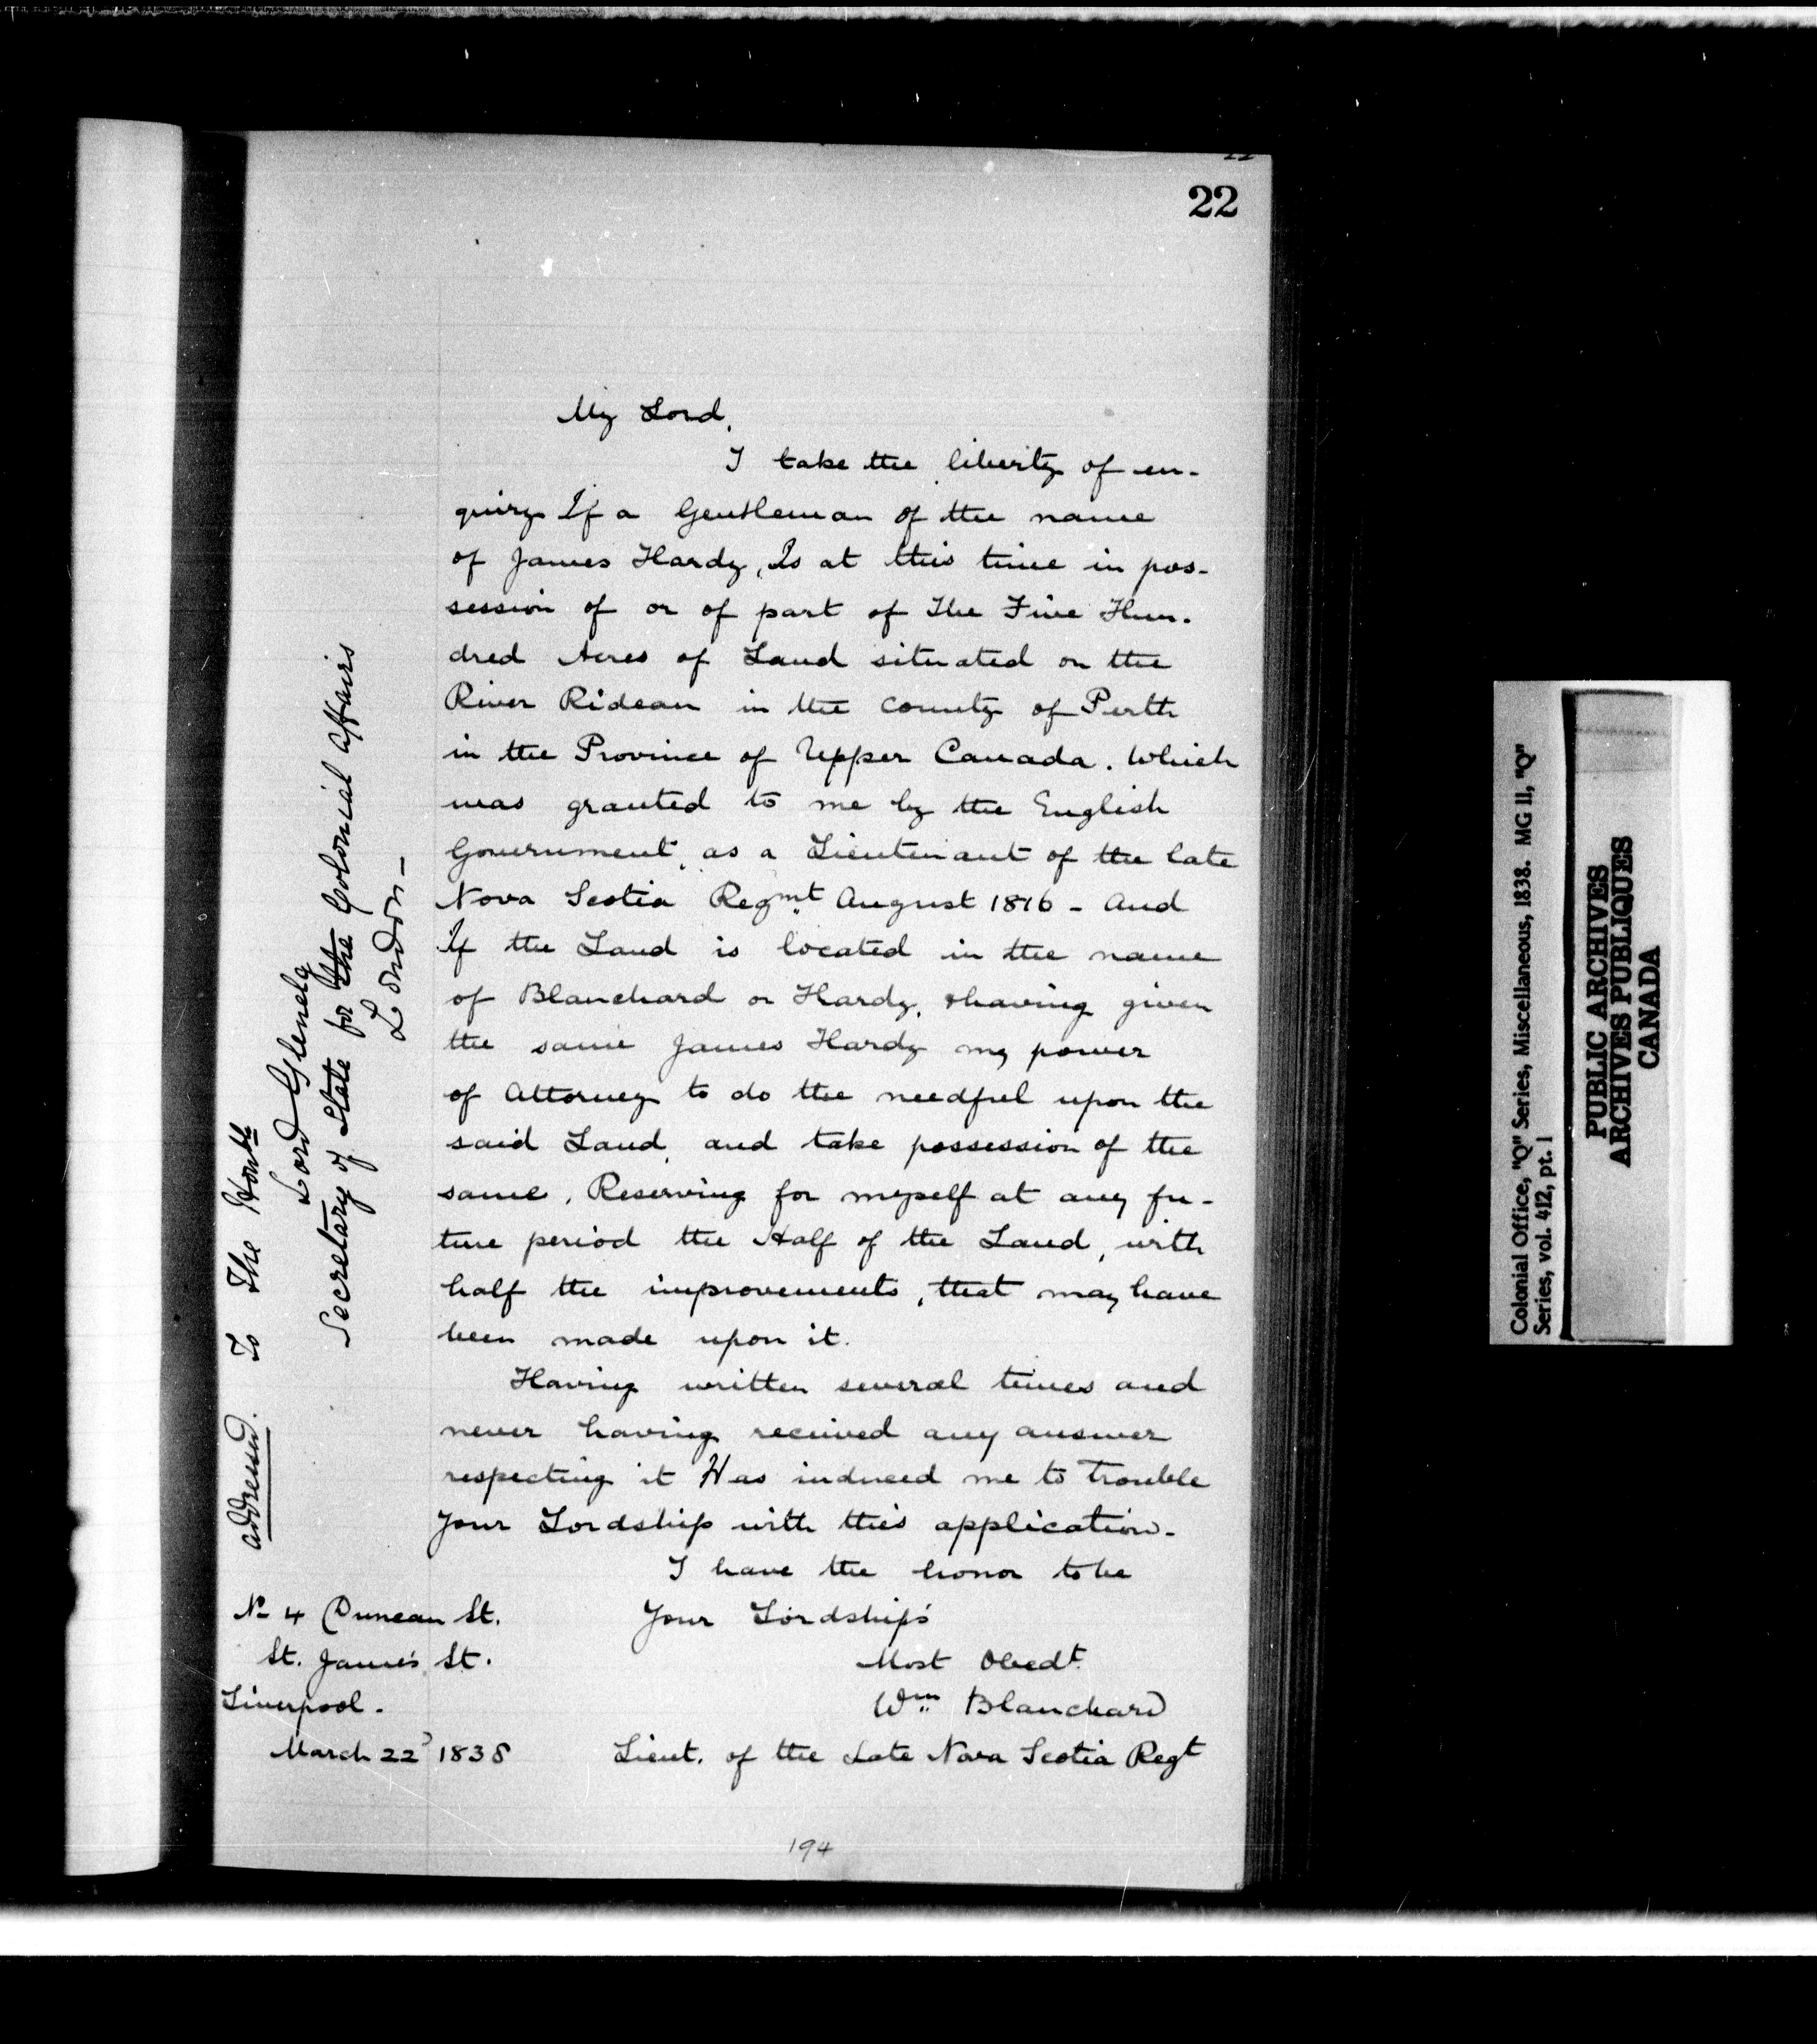 22
My Lord,
I take the liberty of en-
quiry If a Gentleman of the name
of James Hardy, Is at this time in pos-
session of or of part of The Five Hun-
dred Acres of Land situated on the
River Rideau in the county of Perth
in the Province of Upper Canada. Which
was granted to me by the English
Government, as a Lieutenant of the late
Nova Scotia Regmt August 1816 - And
If the Land is located in the name
of Blanchard or Hardy, having given
the same James Hardy my power
of Attorney to do the needful upon the
said Land, and take possession of the
same, Reserving for myself at any fu-
ture period the Half of the Land, with
half the improvements, that may have
been made upon it.
Having written several times and
never having received any answer
respecting it Has induced me to trouble
your Lordship with this application.
I have the honor to be
Your Lordship's
Most Obedt.
Wm Blanchard
Lieut. of the Late Nova Scotia Regt
No 4 Duncan St.
St. James St.
Liverpool.
March 22d 1838
addressed. To The Honble
Lord Glenelg
Secretary of State for the Colonial Affairs
London -
194
Colonial Office, "Q" Series, Miscellaneous, 1838. MG 11, "Q"
Series, vol. 412, pt. 1
PUBLIC ARCHIVES
ARCHIVES PUBLIQUES
CANADA